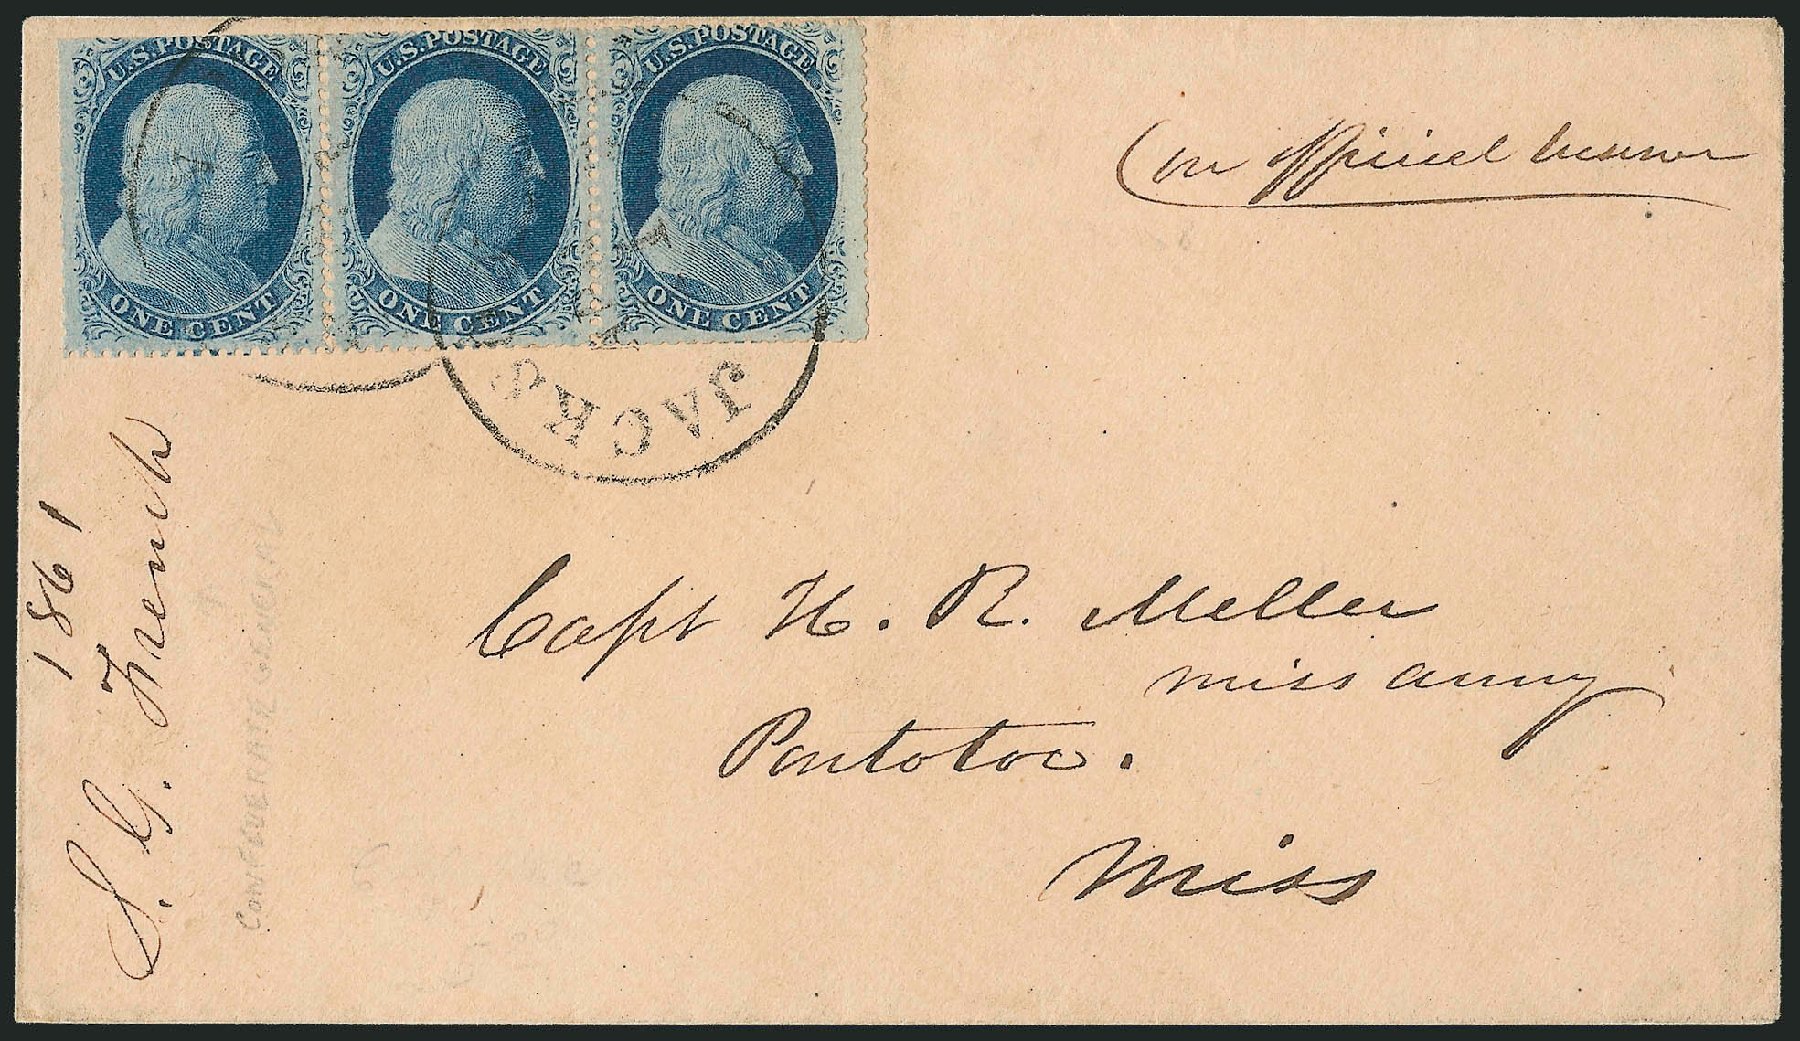 U.S. POSTAGE U.S. POSTAGE U.S. POSTAGE
ONE CENT ONE CENT ONE CENT
JACKS
On official business
Capt H. R. Meller
miss army
Pontotoc.
Miss
1861
S. G. French
CONFEDERATE GENERAL